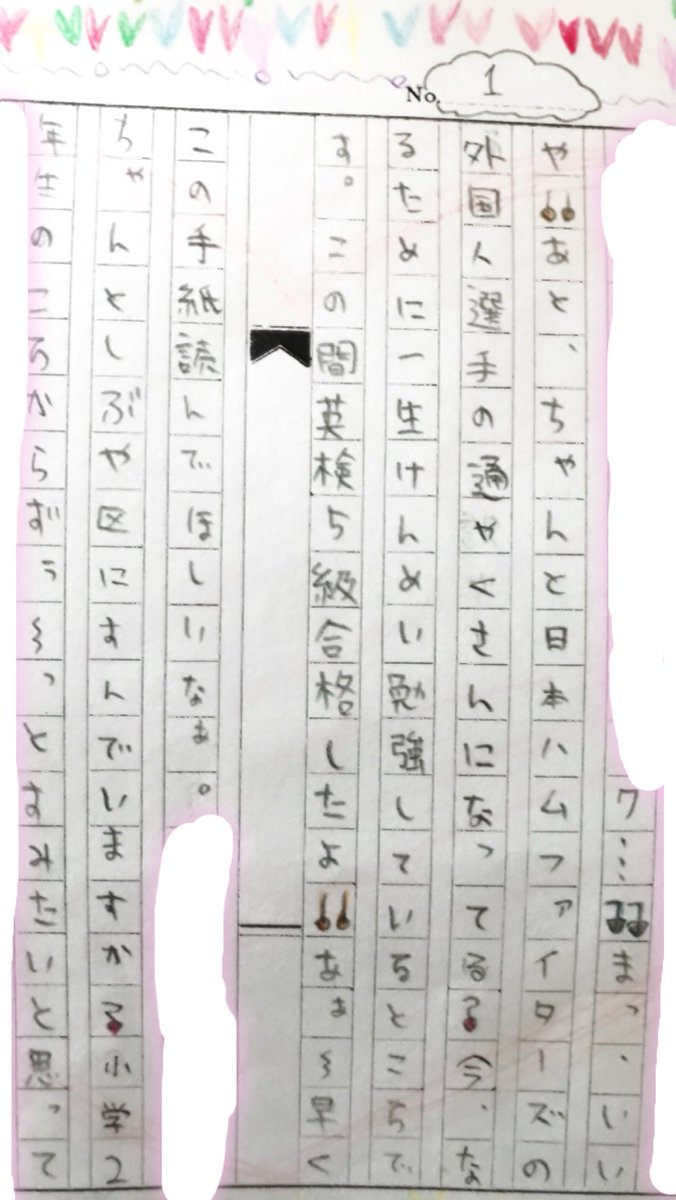 No. 1
ワ…!!まっ、いい
や!!あと、ちゃんと日本ハムファイターズの
外国人選手の通やくさんになってる?今、な
るために一生けんめい勉強しているところで
す。この間英検5級合格したよ!!あぁ〜早く
この手紙読んでほしいなぁ。
ちゃんとしぶや区にすんでいますか?小学2
年生のころからずぅ〜っとすみたいと思って